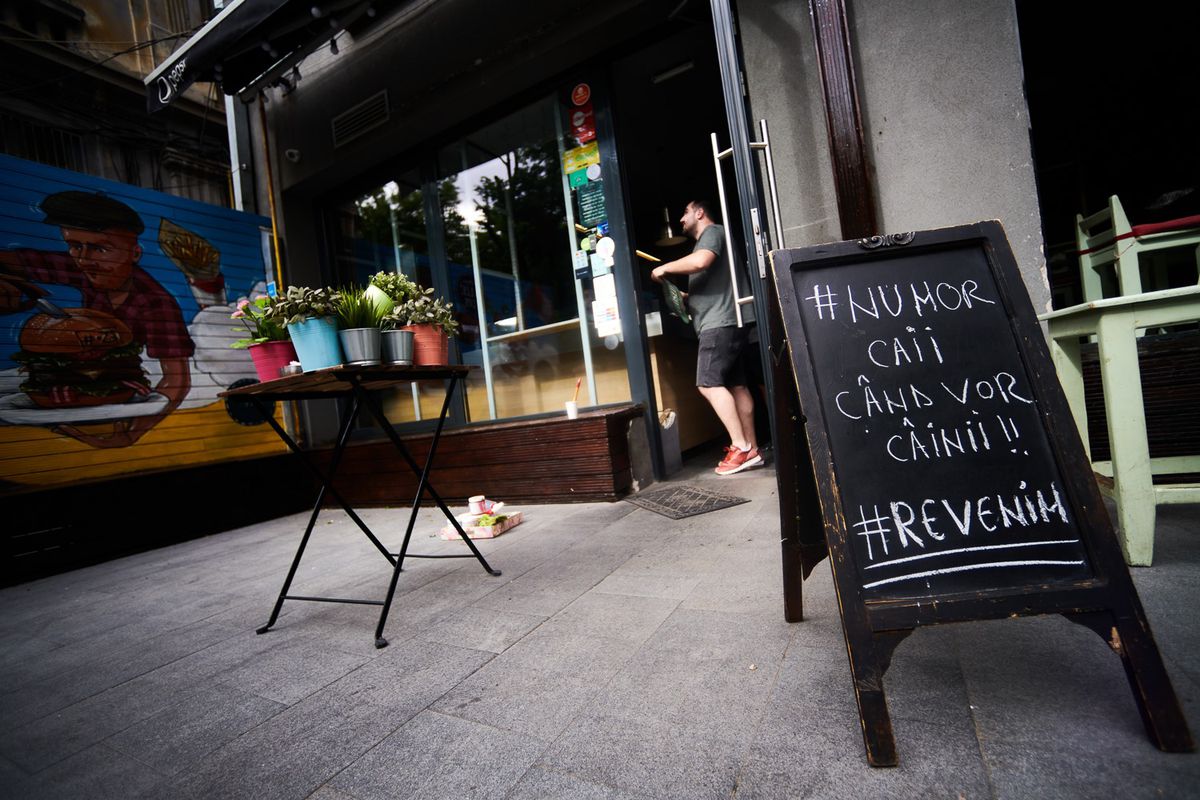 pepsi
#23
#NU MOR
CAII
CÂND VOR
CÂINII!!
#REVENIM